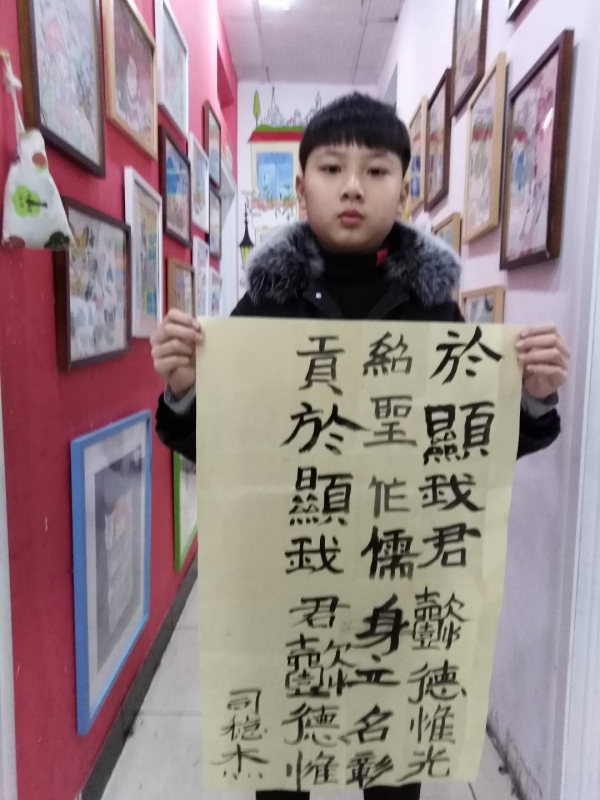 於顯我君懿德惟光
紹聖作儒身立名彰
貢於顯我君懿德惟
司稳杰